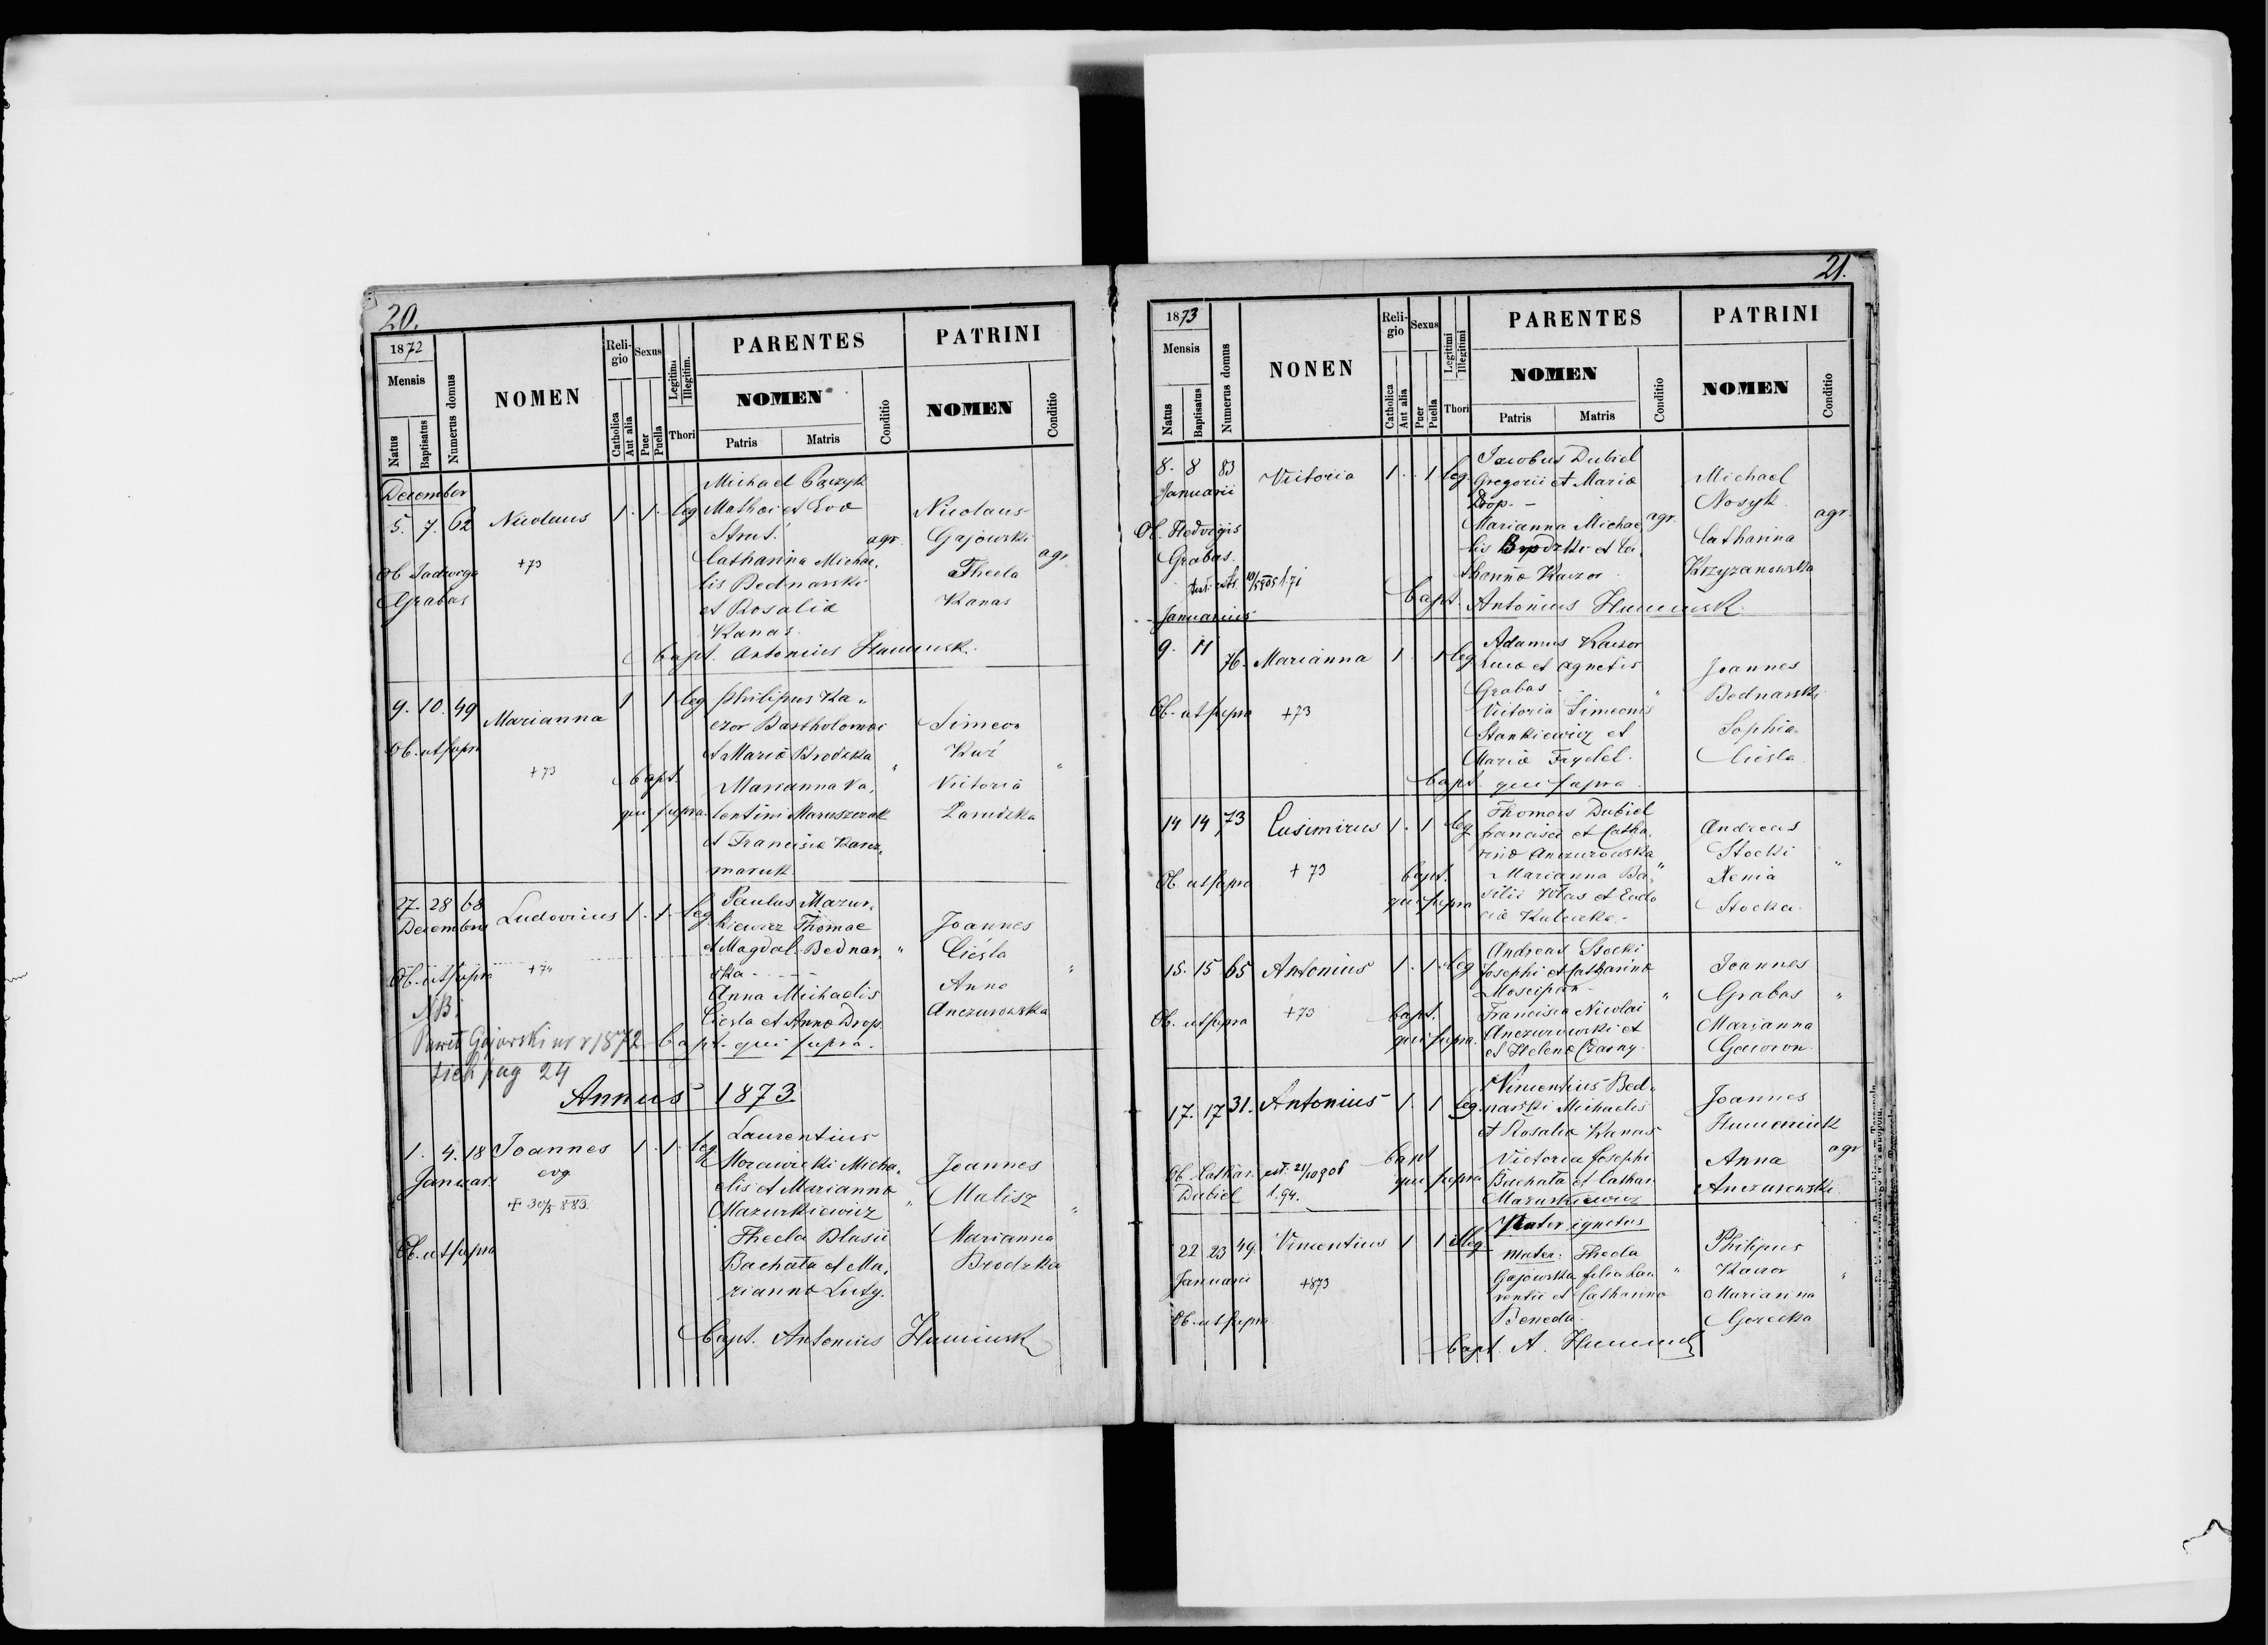 20.
1872
Mensis
Natus
Baptisatus
Numerus domus
NOMEN
Religio
Catholica
Aut alia
Sexus
Puer
Puella
Legitimi
Illegitim.
Thori
PARENTES
NOMEN
Patris
Matris
Conditio
PATRINI
NOMEN
Conditio
December
5. 7. 62 Nicolaus 1. 1. leg
+73
Ob. Jadwiga
Grabas
Michael
Mathei et Eva
Strus.
Catharina Michae,
lis Bednarski
et Rosalia
Kanas.
agr.
Nicolaus
Gajowski
Thecla
Kanas
agr
bapt. Antonius
9. 10. 49 Marianna 1 1 leg
Ob. ut supra
+73
bapt.
qui supra.
Philipus Ka„
czor Bartholomei
et Maria Brodzka
Marianna Va,
lentini Maruszczak
et Francisca Karcz,
maruk
"
Simeon
Kuź
Victoria
Zarudzka
"
27. 28 68 Ludovicus 1. 1. leg
Decembris
Ob. ut supra
NB.
Paweł Gajowski ur r 1872
pag 24
Paulus Mazur,
kiewicz Thomae
et Magdal. Bednar,
ska
Anna Michaelis
Ciesla et Anna Drop.
"
Joannes
Cieśla
Anna
Anczurowska
"
bapt. qui supra.
Annus 1873.
1. 4. 18 Joannes 1. 1. leg
Januar.
Ob. ut supra
Laurentius
Morawicki Micha,
elis et Marianna
Mazurkiewicz
Thecla Blasii
Bachata et Ma,
rianna Luty.
"
Joannes
Malisz
Marianna
Brodzka
"
bapt. Antonius
21.
1873
Mensis
Natus
Baptisatus
Numerus domus
NONEN
Religio
Catholica
Aut alia
Sexus
Puer
Puella
Legitimi
Illegitimi
Thori
PARENTES
NOMEN
Patris
Matris
Conditio
PATRINI
NOMEN
Conditio
8. 8 83 Victoria 1. 1 leg.
Januarii
Ob. Hedvigis
Grabas.
Jacobus Dubiel
Gregorii et Maria
Drop. -
Marianna Michae
lis Brodzki et Ca,
tharina Kaczor
agr.
Michael
Nosyk
Catharina
Krzyzanowska
agr.
bapt. Antonius
Januarius
9. 11 76. Marianna 1 1 leg
Ob. ut supra +73
Adamus Kaczor
Luca et Agnetis
Grabas
Victoria Simeonis
Stankiewicz et
Maria Frydel.
"
Joannes
Bednarski
Sophia
Ciesla
bapt. qui supra.
14 14 73 Casimirus 1. 1 leg
Ob ut supra +73
bapt.
qui supra
Thomas Dubiel
Francisci et Catha,
rina Anczurowska
Marianna Ba,
silii Wlas et Eudo
"
Andreas
Stocki
Xenia
Stocka
"
15. 15 65 Antonius 1. 1. leg
Ob. ut supra +73
bapt.
qui supra.
Andreas Stocki
Josephi et Catharina
Francisca Nicolai
Anczurowski et
et Helena Czarny.
"
Joannes
Grabas
Marianna
Gawron
"
17. 17 31. Antonius 1. 1 leg.
Ob. Cathar.
Dubiel 1.94.
bapt
qui supra
Vincentius Bed,
narski Michaelis
et Rosalia Kanas
Victoria Josephi
Bachata et Cathar.
Mazurkiewicz
Joannes
Humeniuk
Anna
Anczurowska
agr
22 23 49. Vincentius 1 1 illeg
Januarii +873
Ob. ut supra
Pater ignotus
mater: Thecla
Gajowska filia Lau
rentii et Catharina
Beneda.
"
Philipus
Kaczor
Marianna
Gorecka
"
bapt. A.